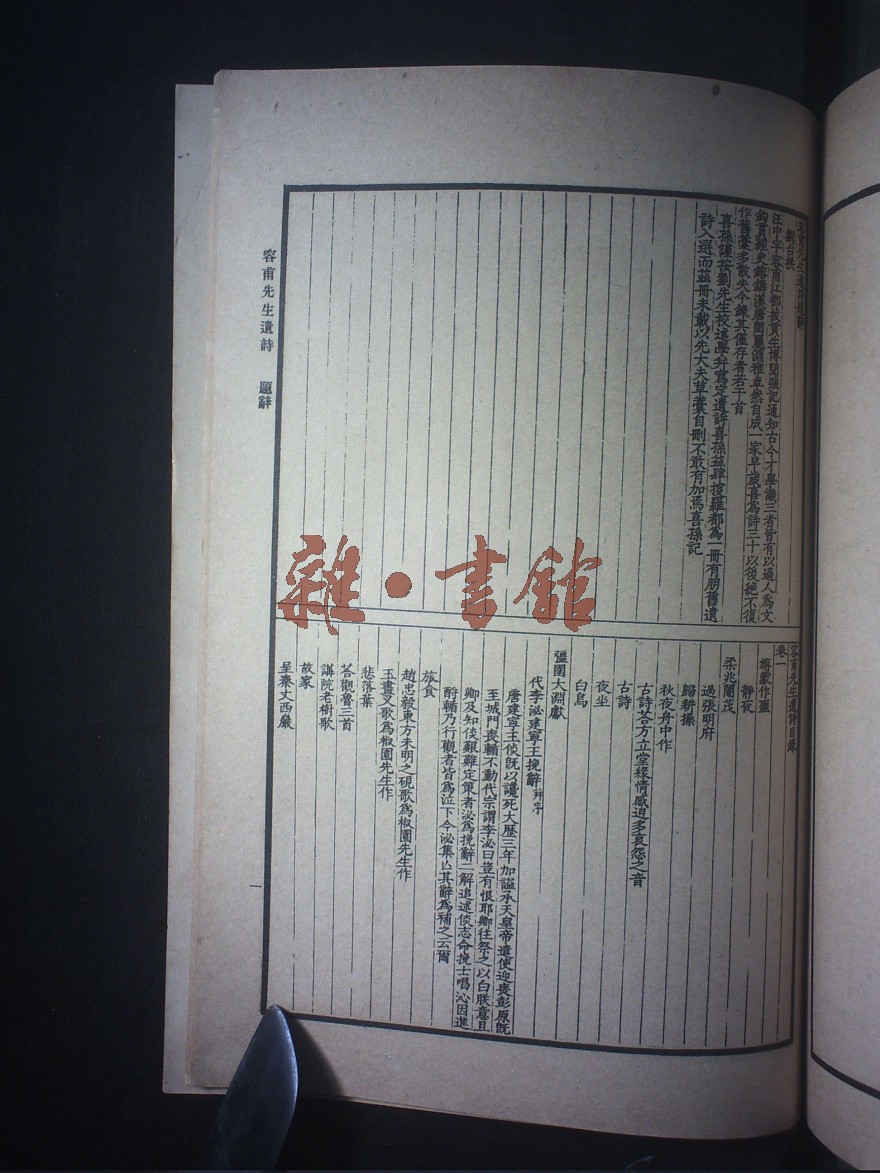 容甫先生遺詩題辭
劉台拱
汪中字容甫江都拔貢生博聞強記通知古今才學識三者皆有以過人為文
鉤貫經史鎔鑄漢唐閎麗淵雅卓然自成一家早歲喜為詩三十以後絕不復
作舊稾多散失今錄其僅存者若干首
喜孫謹按劉先生挍述學并寫定遺詩喜孫益肆搜羅都為一冊有朋舊遺
詩入選而茲冊未載以先大夫草稾自刪不敢有加焉喜孫記
容甫先生遺詩目錄
卷一
旃蒙作噩
靜夜
柔兆閹茂
過張明府
歸耕操
秋夜舟中作
古詩荅方立堂緣情感迫多哀怨之音
古詩
夜坐
白鳥
彊圉大淵獻
代李泌建寧王挽辭并序
唐建寧王倓旣以讒死大歷三年加謚承天皇帝遣使迎喪彭原旣
至城門喪輴不動代宗謂李泌曰豈有恨耶卿往祭之以白朕意且
卿及知倓艱難定策者泌為挽辭二解追述倓志命挽士唱泌因進
酹輴乃行觀者皆為泣下今泌集亾其辭為補之云爾
旅食
趙忠毅東方未明之硯歌為椒園先生作
玉畫叉歌為椒園先生作
悲落葉
荅觀魯三首
講院老樹歌
故家
呈秦丈西巖
容甫先生遺詩 題辭
一
雜·書館